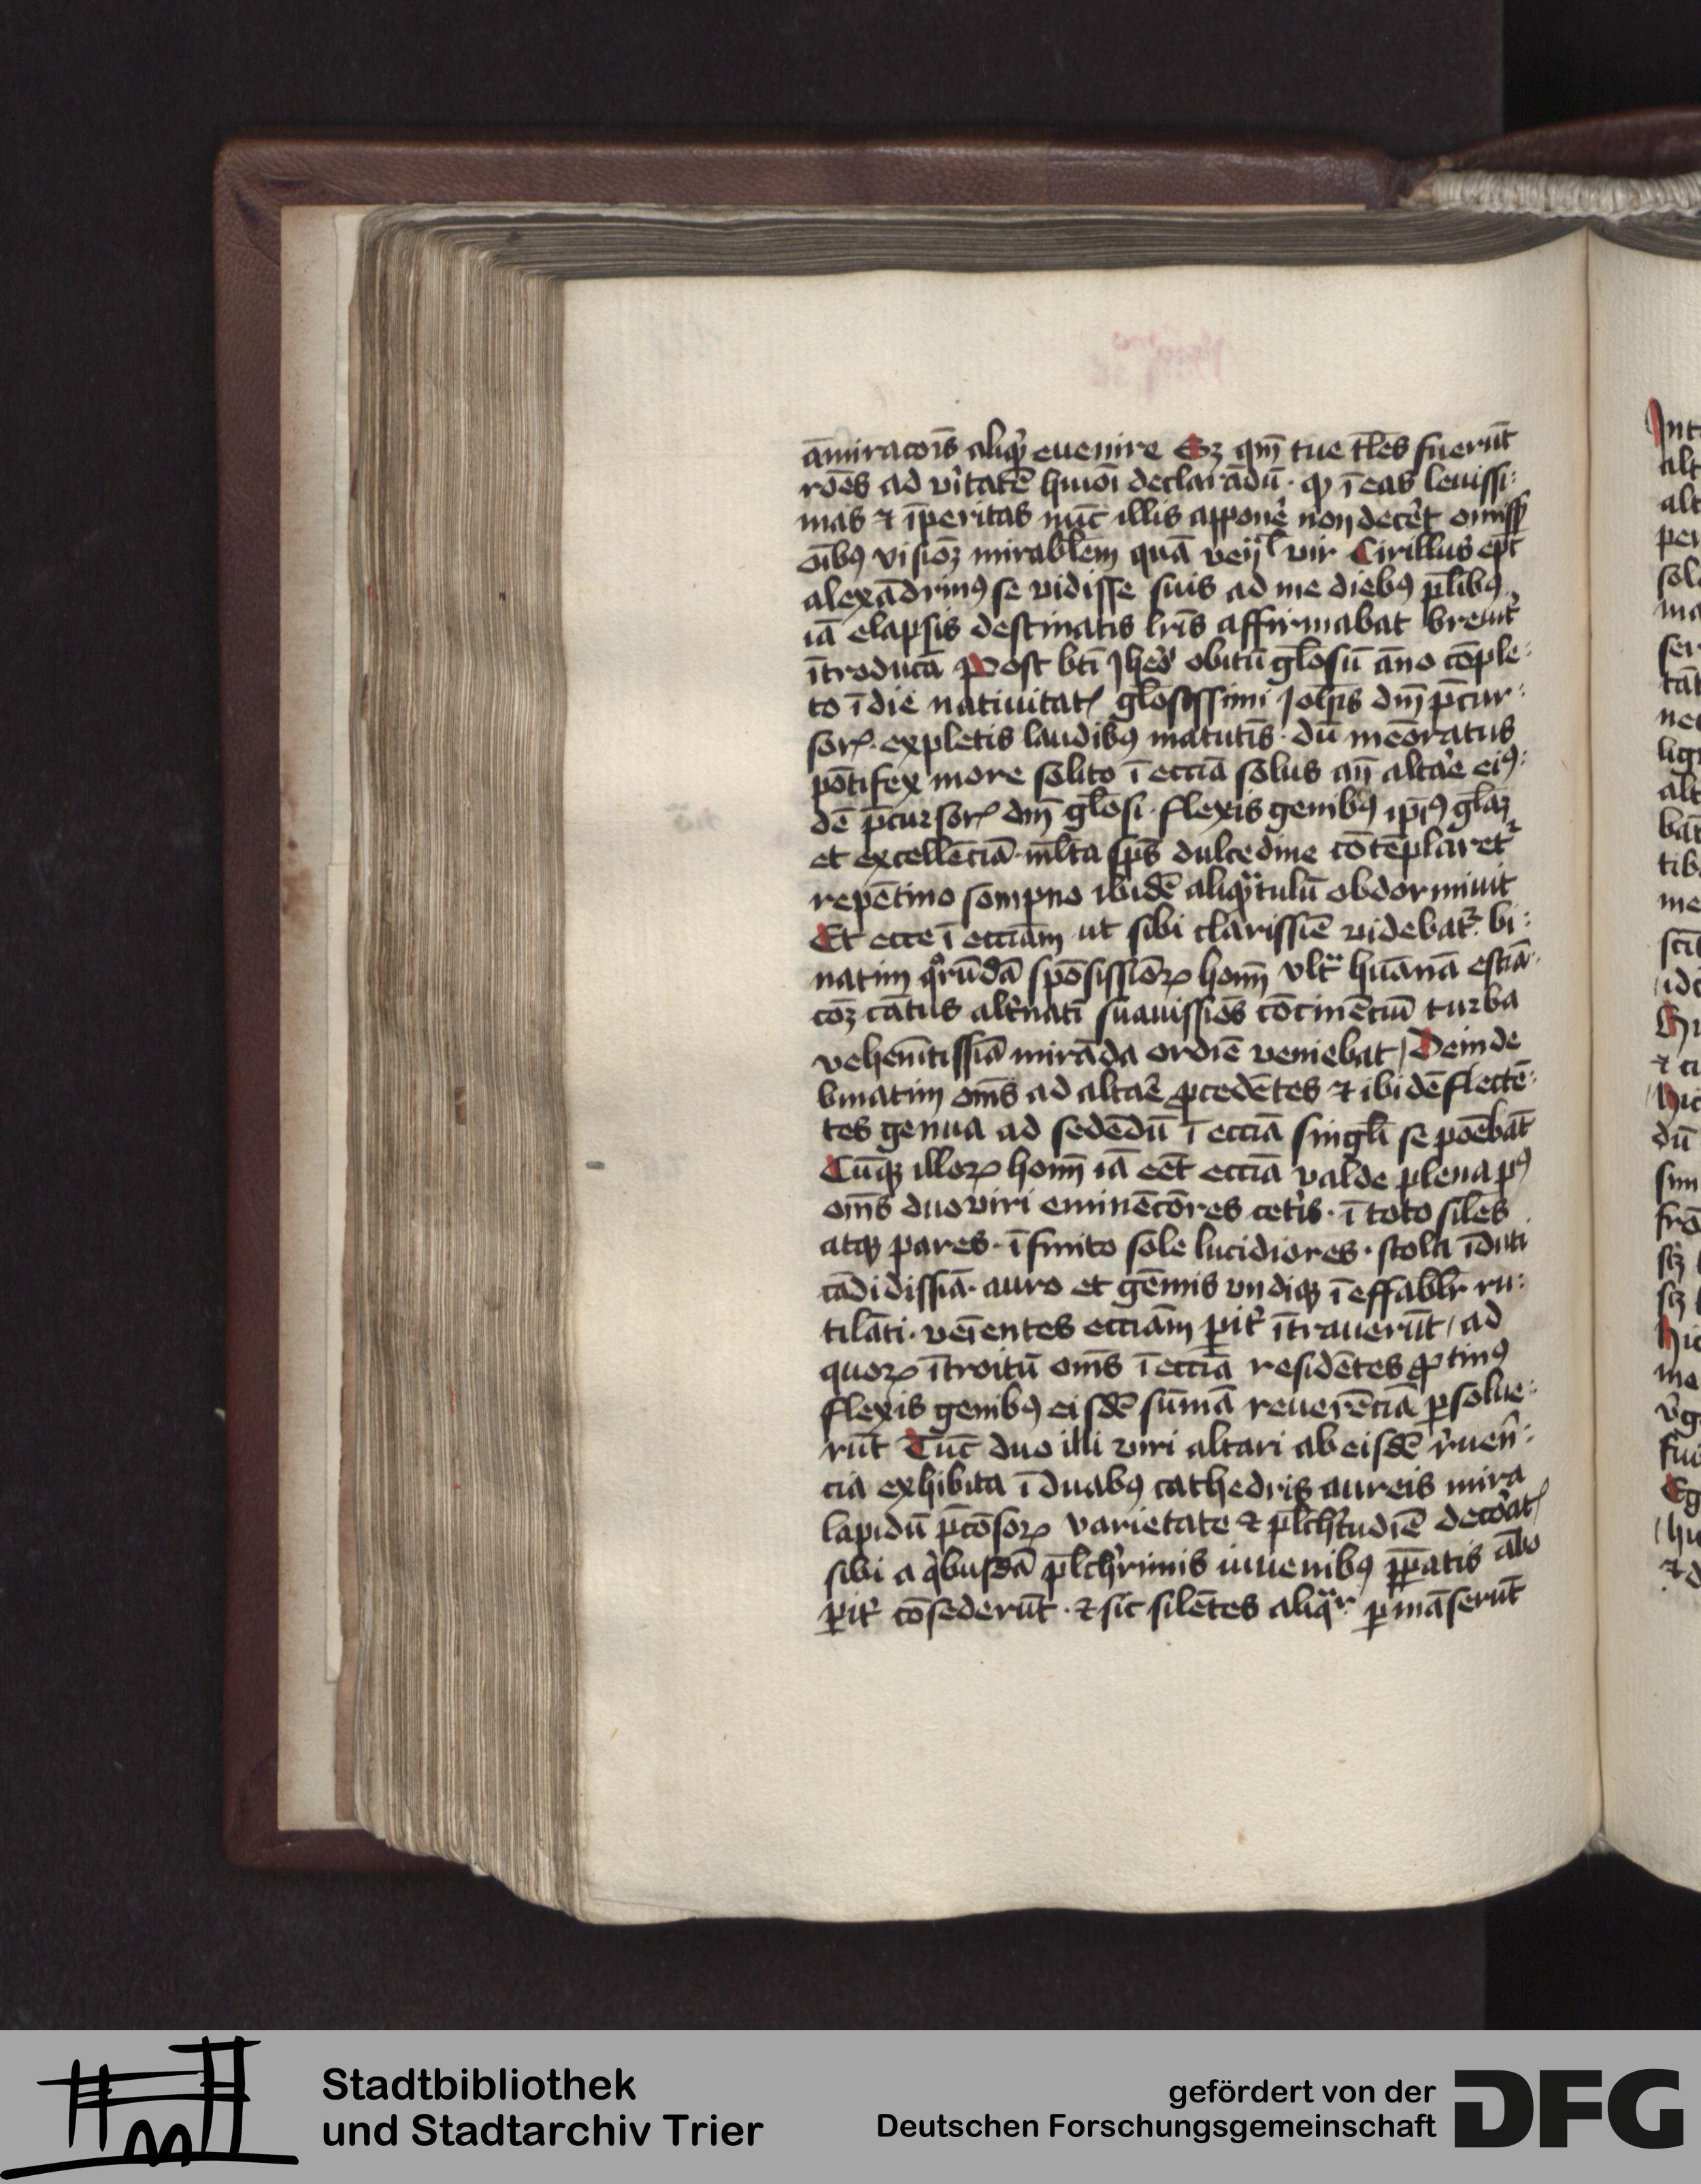 āmiracoīs aliqͥ euenire Sȝ qm̄ tue tl̄es fuerūt
rōes ad v̓itatē hmōi declarādū · ꝙ ī eas leuissi:
mas ⁊ īperitas nūc illis appone᷑ non dece᷑t omissꝭ
oībꝰ visioȝ mirablem̄ quā veīl̄ vir Cirillus ep̄c
alexādrinꝰ se vidisse suis ad me diebꝰ pl̄ibꝰ
iā elapsis destinatis lr̄is affirmabat breuit᷑
ītroducā Post bt̄i Jhe᷑o᷑ obitū gl̄osū āno cōple:
to ī die natiuitatꝭ gl̄osissimi Joh̄is dn̄i p̄cur:
sorꝭ · expletis laudibꝰ matutīs · dū meōratus
pōtifex more solito ī ecciā solus an̄ alta᷑e eiꝰ:
dē p̄cursorꝭ dn̄i gl̄osi · flexis genibꝰ ip̄iꝰ gl̄iaȝ
et excellēciā · ml̄ta sp̄s dulcedine cōtēplaret᷑
repētino sompno ibidē aliqͣtulū obdormiuit
Et ecce ī ecciam̄ ut sibi clarissiē videbat᷑ · bi:
natim qͦrūdā spōsissiōꝝ hom̄ vltͣ huānā estiā:
cōȝ cātus alt᷑natī suauissiōs cōcinēciū turba
vehem̄tissiā mirāda ordiē veniebat / Deinde
binatim om̄s ad alta᷑e ꝓcedētes ⁊ ibidē flectē:
tes genua ad sedēdū ī ecciā singl̄i se poēbāt
Cūqȝ illoꝝ hom̄ iā eēt ecciā valde plena pꝰ
om̄s duo viri eminēcōres cet᷑is · ī toto siles
atqȝ pares · īfinito sole lucidiores · stola īduti
cādidissiā · auro et gēmis vndiqȝ īeffabl̄r ru:
tilāti · veīentes ecciam̄ ꝑit᷑ ītrauerūt / ad
quoꝝ ītroitū om̄s ī ecciā residētes ꝓtinꝰ
flexis genibꝰ eisdē sūmā reuerēciā ꝑsolue:
rūt Tūc duo illi viri altari ab eisdē r᷑uen̄:
cia exhibita ī duabꝰ cathedris aureis mira
lapidū p̄cōsoꝝ varietate ⁊ pl̄ch᷑tudiē deco᷑atꝭ
sibi a qͥbusdā pl̄ch᷑rimis iuuenibꝰ p̄ꝑatis ābo
ꝑit᷑ cōsederūt · ⁊ sic silētes aliqͣr ꝑmāserūt
Stadtbibliothek
und Stadtarchiv Trier
gefördert von der
Deutschen Forschungsgemeinschaft
DFG